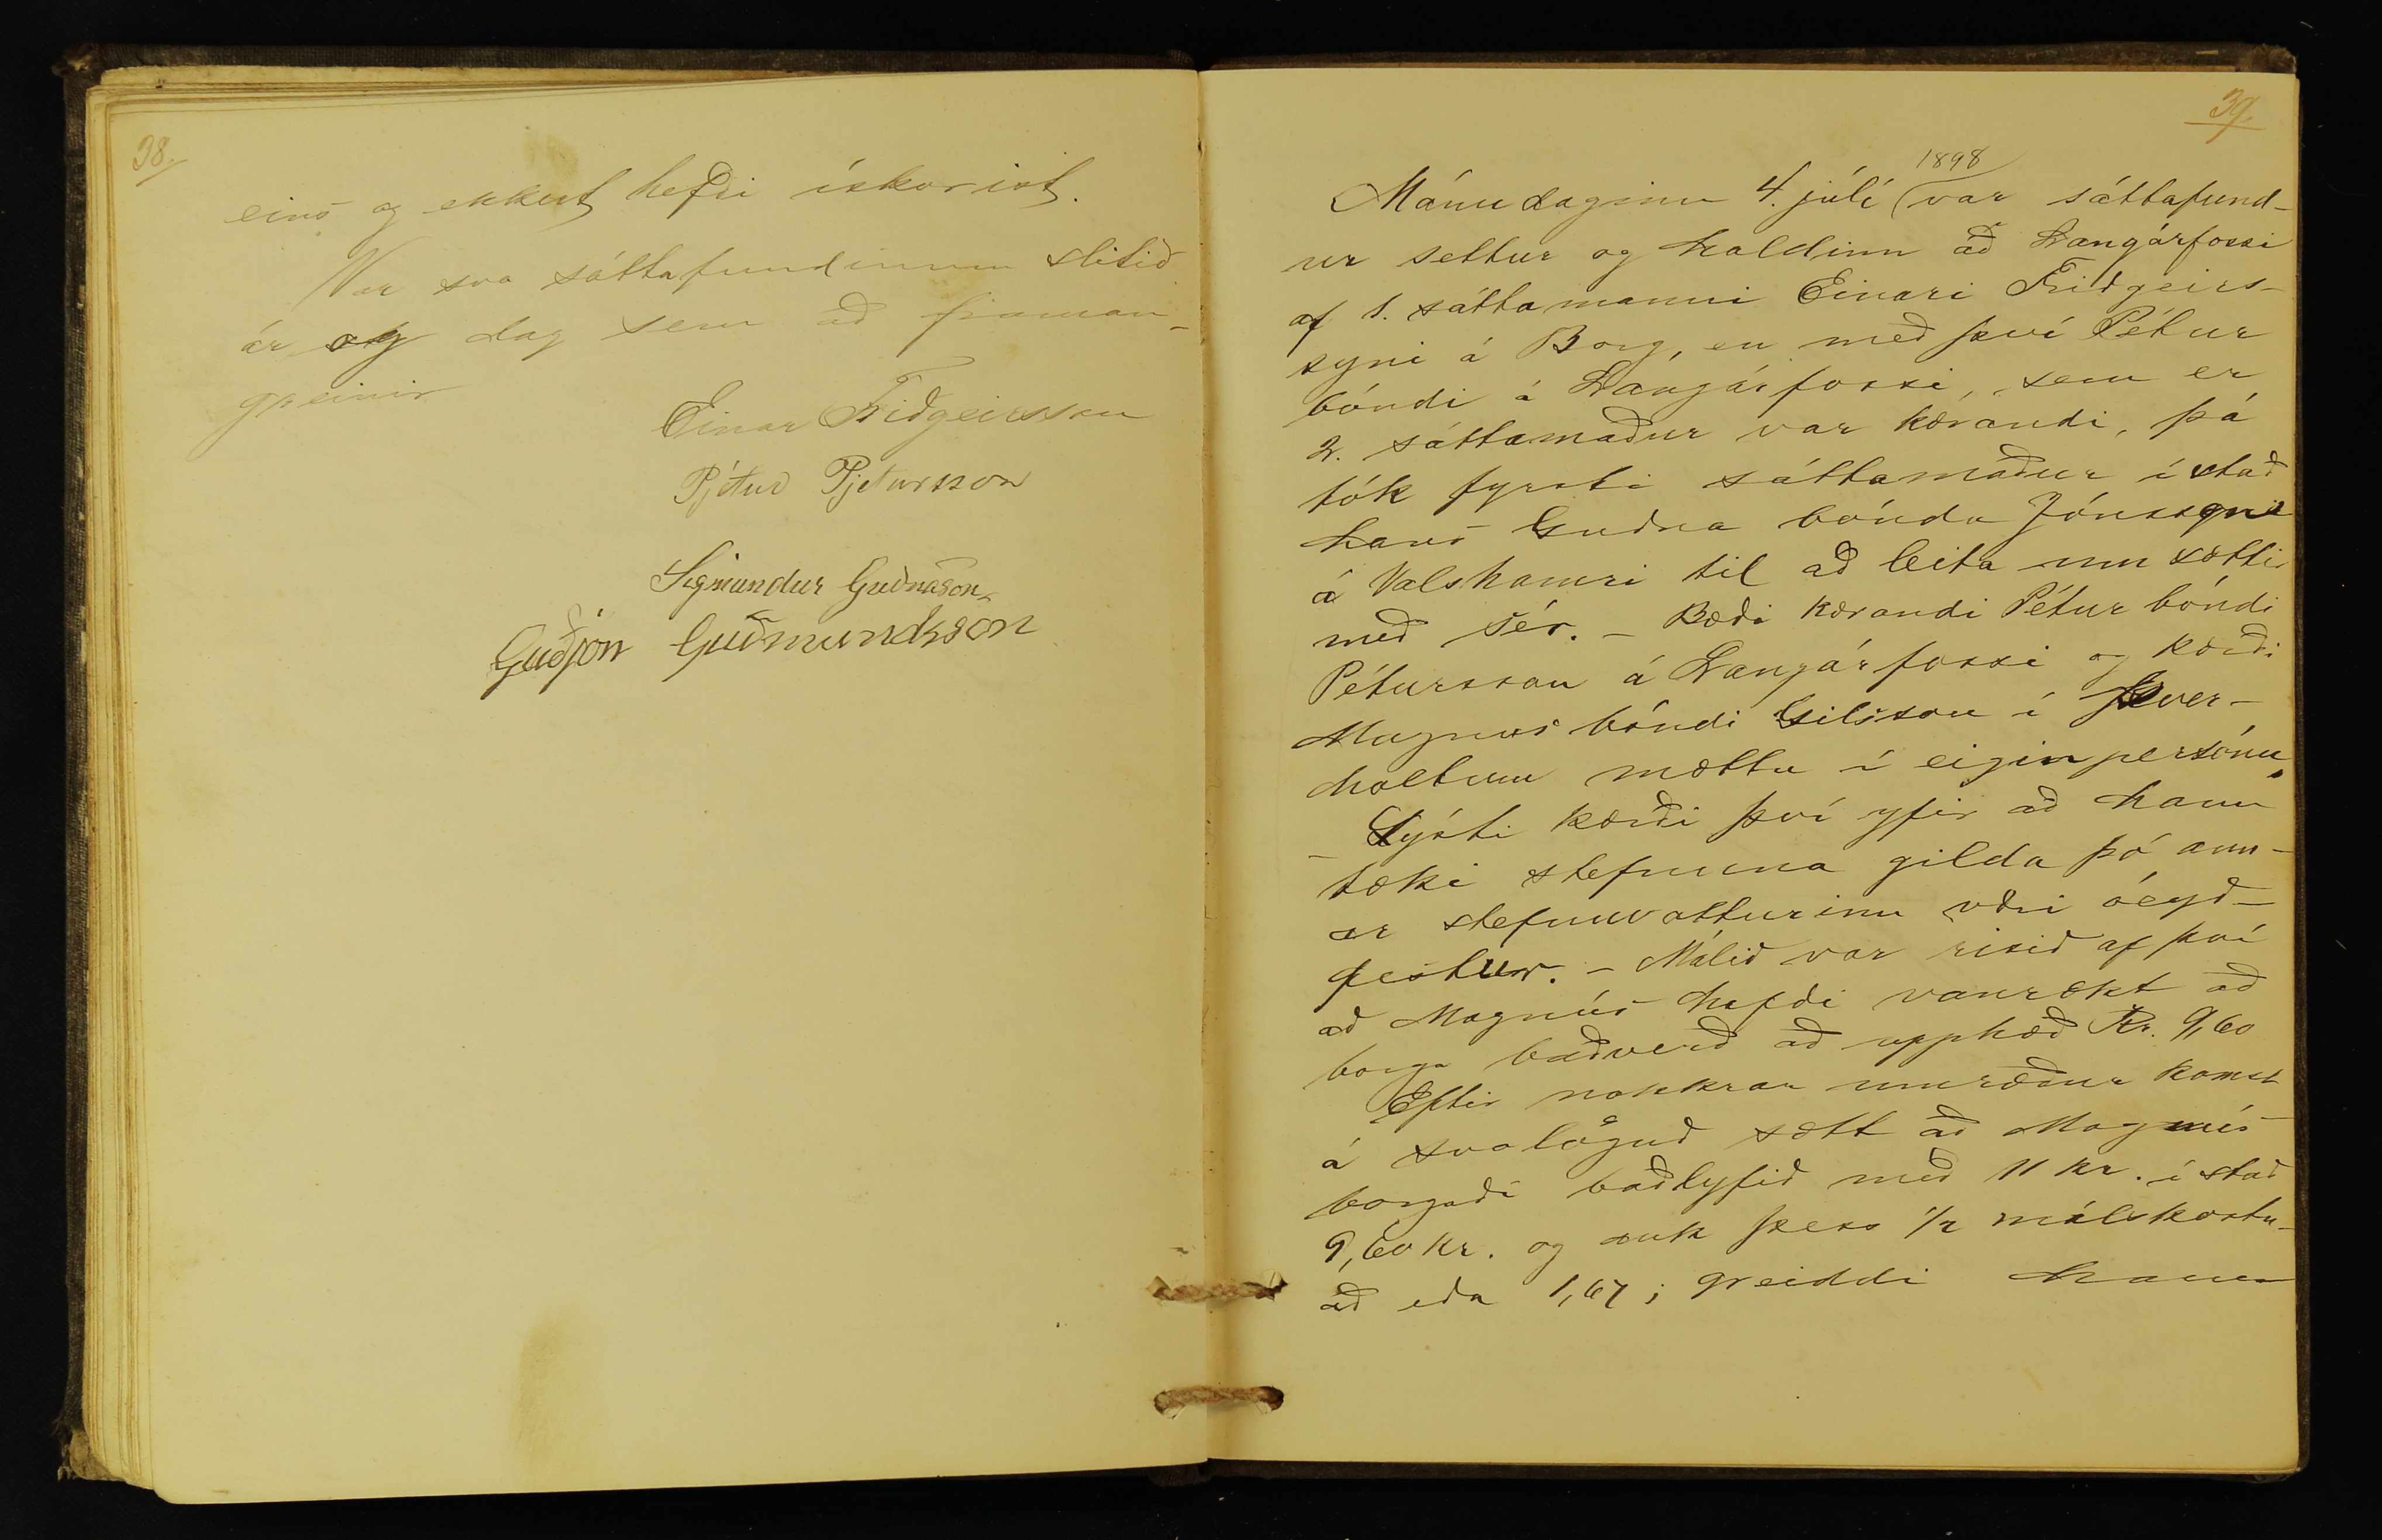 38.
eins og ekkert hefði ískorist.
Var svo sáttafundinum slitið
ár og dag sem að framan-
greinir
Einar Friðgeirsson
Pjetur Pjetursson
Sigmundur Guðnason
Guðjón Guðmundsson
39.
1898
Mánudaginn 4. júlí var sáttafund-
ur settur og haldinn að Langárfossi
af 1. sáttamanni Einari Friðgeirs-
syni á Borg, en með því Pétur
bóndi á Langárfossi, sem er
2. sáttamaður var kærandi, þá
tók fyrsti sáttamaður í stað
hans Guðna bónda Jónssyni
á Valshamri til að leita um sættir
með sér. - Bæði kærandi Pétur bóndi
Pétursson á Langárfossi og kærði
Magnús bóndi Gilsson í Þver-
holtum mættu í eigin persónu.
- Lýsti kærði því yfir að hann
tæki stefnuna gilda þó ann-
ar stefnuvotturinn væri óeyð-
festur. - Málið var risið af því
að Magnús hafði vanrækt að
borga baðverð að upphæð Kr. 9,60
Eftir nokkrar umræður komst
á svolöguð sætt að Magnús
borgaði baðlyfið með 11 kr. í stað
9,60 kr. og auk þess 1/2 málskostn-
að eða 1,67; greiddi hann